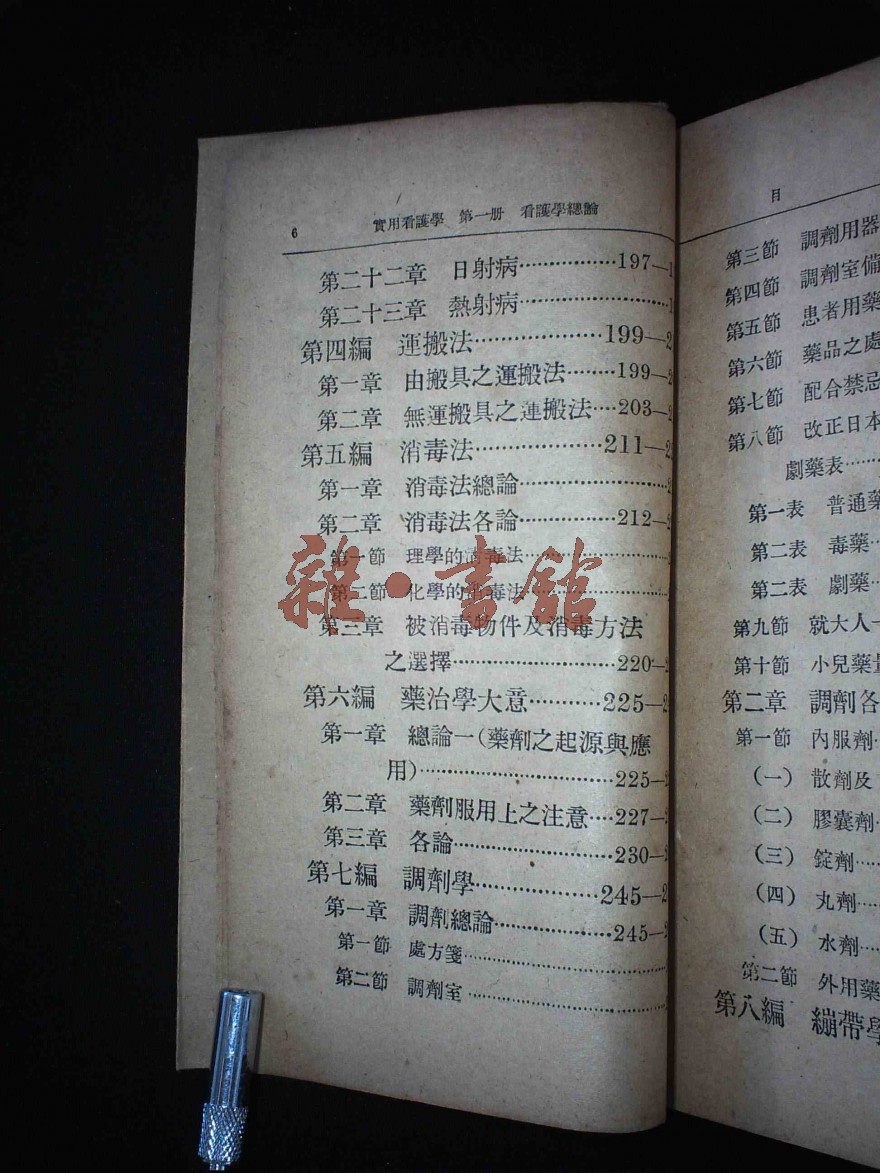 6 實用看護學 第一册 看護學總論
第二十二章 日射病……………197—1
第二十三章 熱射病……………………1
第四編 運搬法………………199—2
第一章 由搬具之運搬法……199—2
第二章 無運搬具之運搬法…203—2
第五編 消毒法………………211—2
第一章 消毒法總論……………………2
第二章 消毒法各論……………212—2
第一節 理學的消毒法…………………
第二節 化學的消毒法…………………
第三章 被消毒物件及消毒方法
之選擇……………………220—2
第六編 藥治學大意…………225—2
第一章 總論一(藥劑之起源與應
用)………………………225—2
第二章 藥劑服用上之注意…227—2
第三章 各論……………………230—2
第七編 調劑學………………245—2
第一章 調劑總論………………245—2
第一節 處方箋…………………………
第二節 調劑室…………………………
雜·書館
目
第三節 調劑用器
第四節 調劑室備
第五節 患者用藥
第六節 藥品之處
第七節 配合禁忌
第八節 改正日本
劇藥表……
第一表 普通藥
第二表 毒藥…
第二表 劇藥…
第九節 就大人一
第十節 小兒藥量
第二章 調劑各
第一節 內服劑…
(一) 散劑及
(二) 膠囊劑…
(三) 錠劑……
(四) 丸劑……
(五) 水劑……
第二節 外用藥
第八編 繃帶學